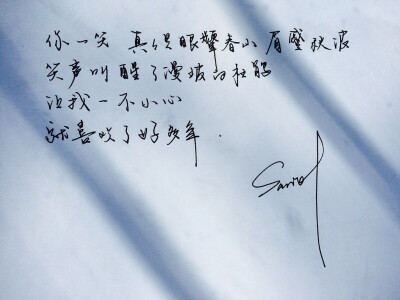 你一笑 真个是眼颦春山 眉蹙秋波
笑声叫醒了漫坡的杜鹃
让我一不小心
就喜欢了好多年.